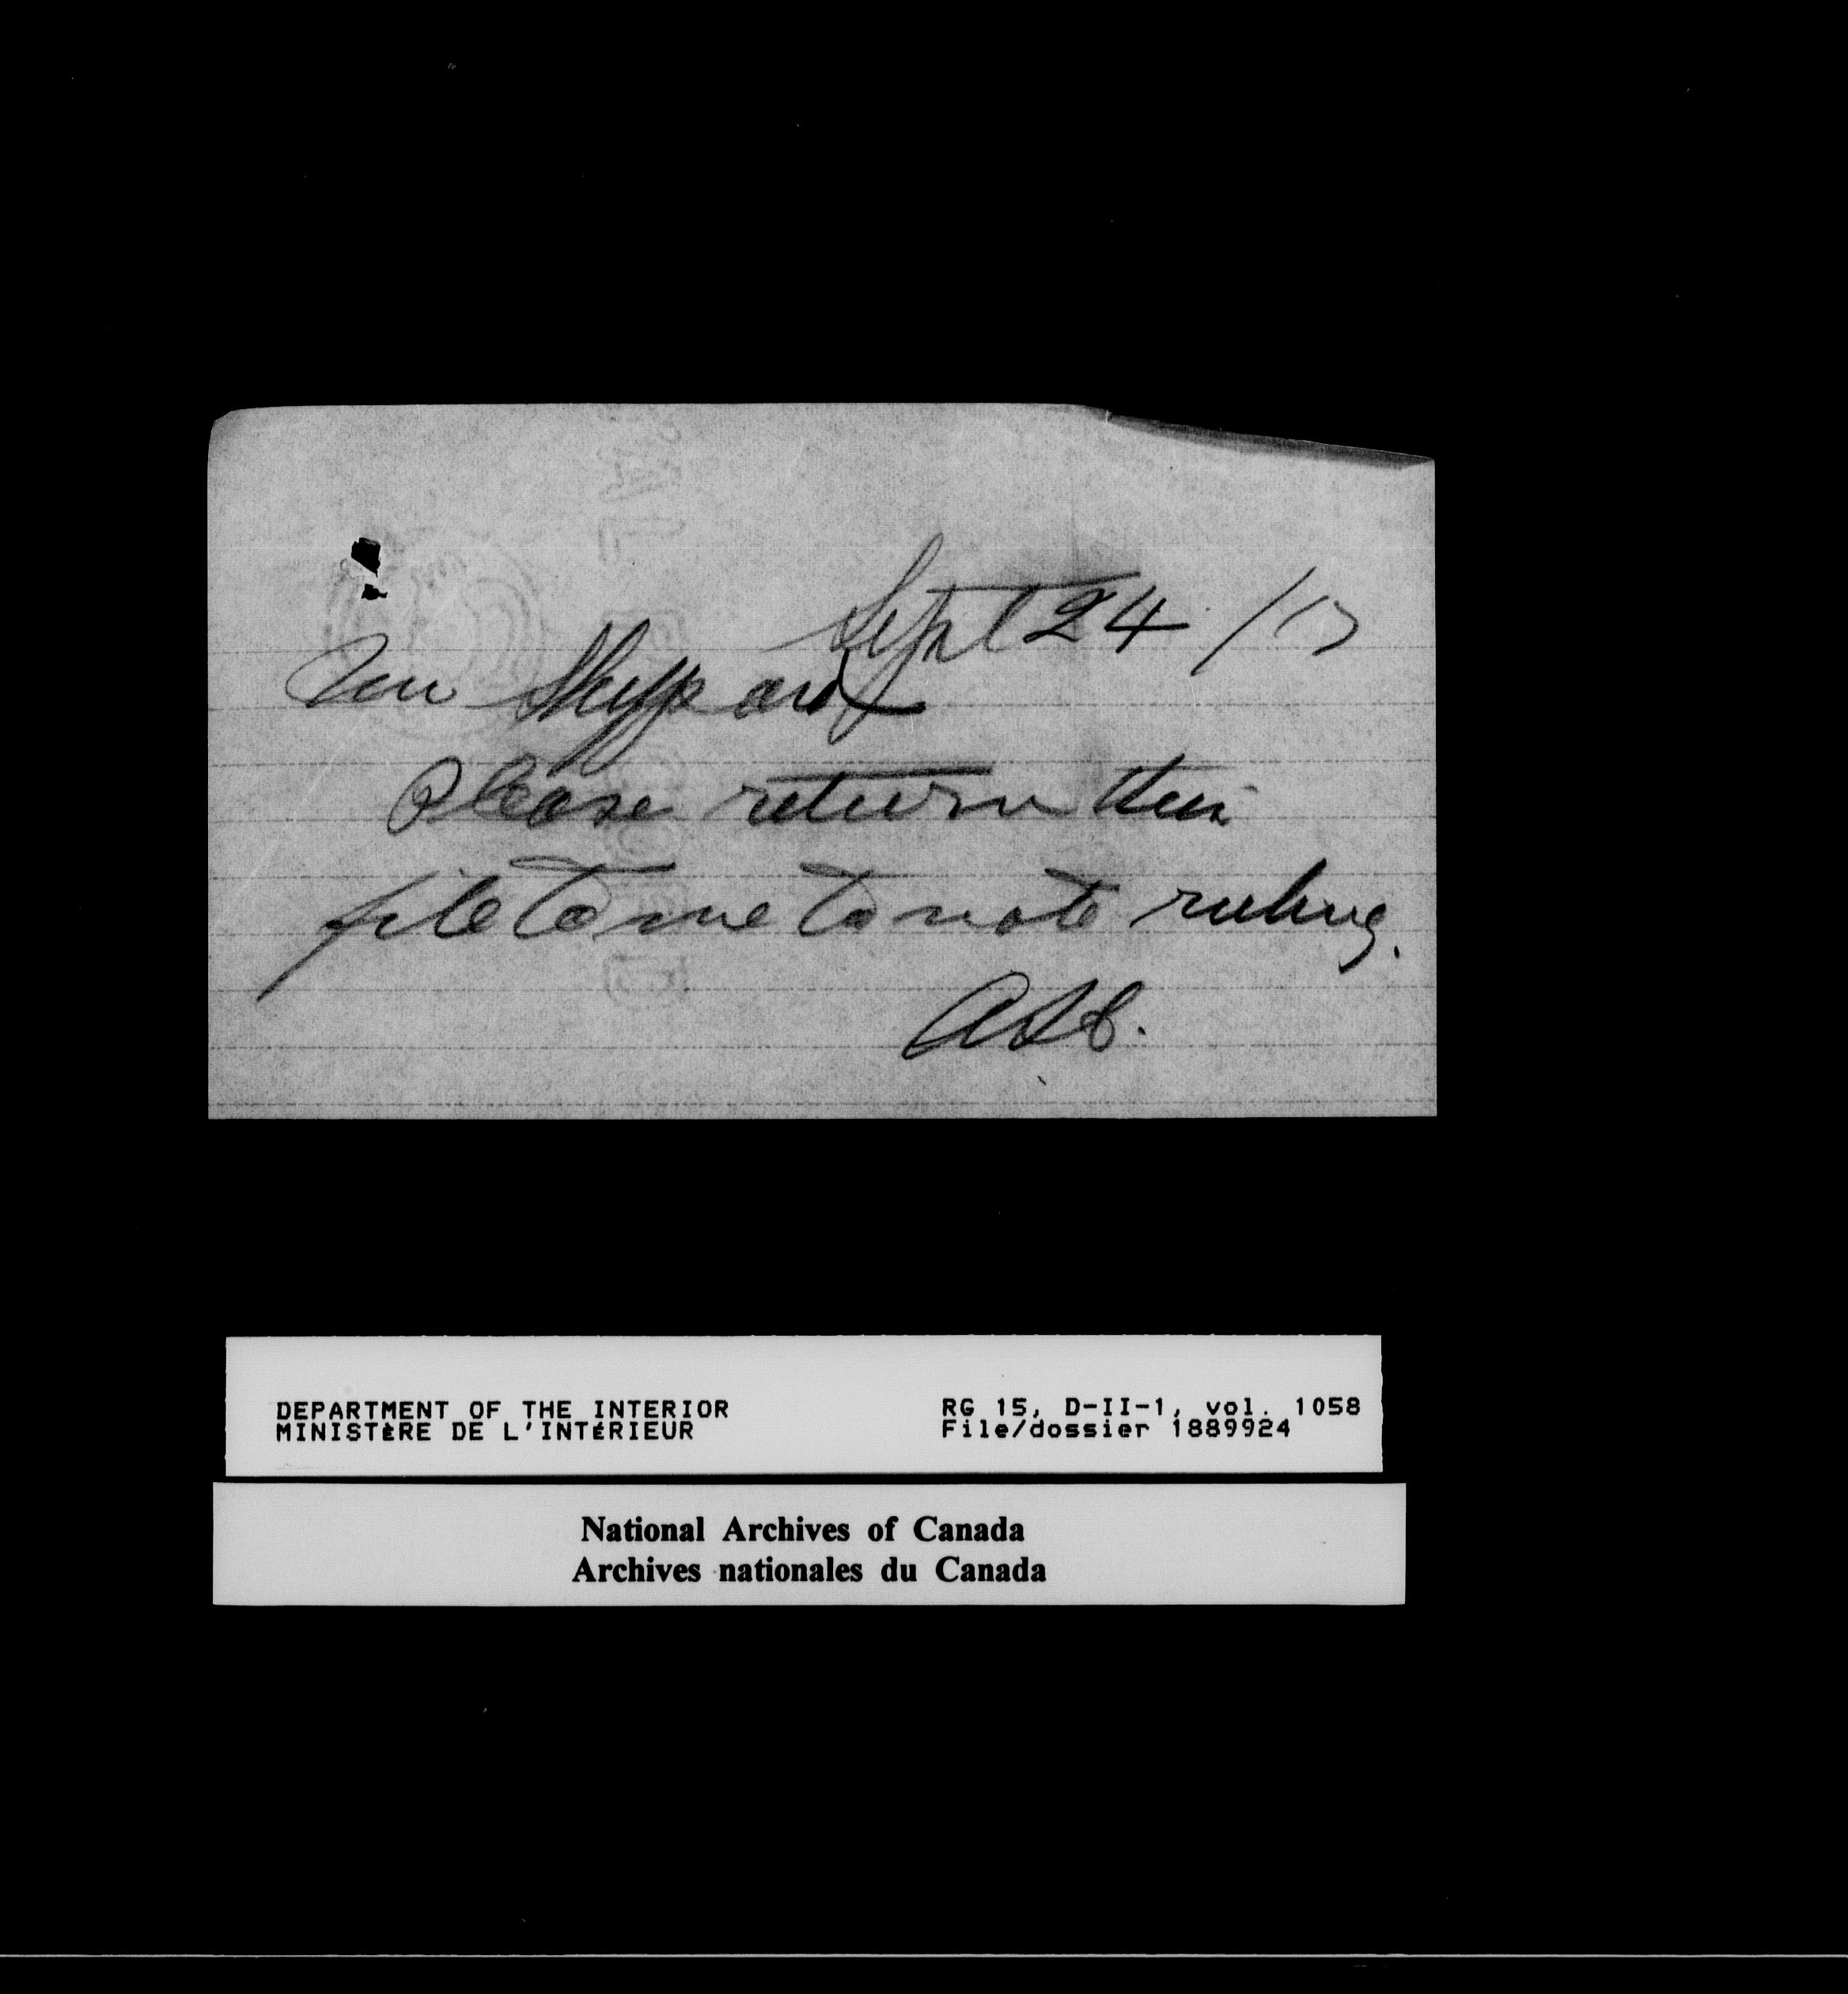 Sept 24 /17
Mr Sheppard
Please return this
file to me to note ruling.
DEPARTMENT OF THE INTERIOR
MINISTÈRE DE L'INTÉRIEUR
RG 15, D-II-1, vol. 1058
File/dossier 1889924
National Archives of Canada
Archives nationales du Canada